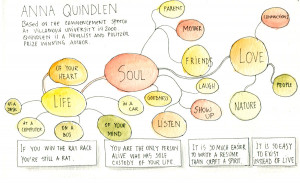 ANNA QUINDLEN
BASED ON THE COMMENCEMENT SPEECH
AT VILLANOVA UNIVERSITY IN 2000.
QUINDLEN IS A NOVELIST AND PULITZER
PRIZE WINNING AUTHOR
PARENT
MOTHER
FRIENDS
LAUGH
CONNECTION
LOVE
PEOPLE
NATURE
SOUL
OF YOUR
HEART
LIFE
AT A
DESK
AT A
COMPUTER
ON A
BUS
IN A
CAR
OF YOUR
MIND
GOODNESS
SHOW
UP
LISTEN
IF YOU WIN THE RAT RACE
YOU'RE STILL A RAT.
YOU ARE THE ONLY PERSON
ALIVE WHO HAS SOLE
CUSTODY OF YOUR LIFE.
IT IS SO MUCH EASIER
TO WRITE A RESUME
THAN CRAFT A SPIRIT.
IT IS SO EASY
TO EXIST
INSTEAD OF LIVE